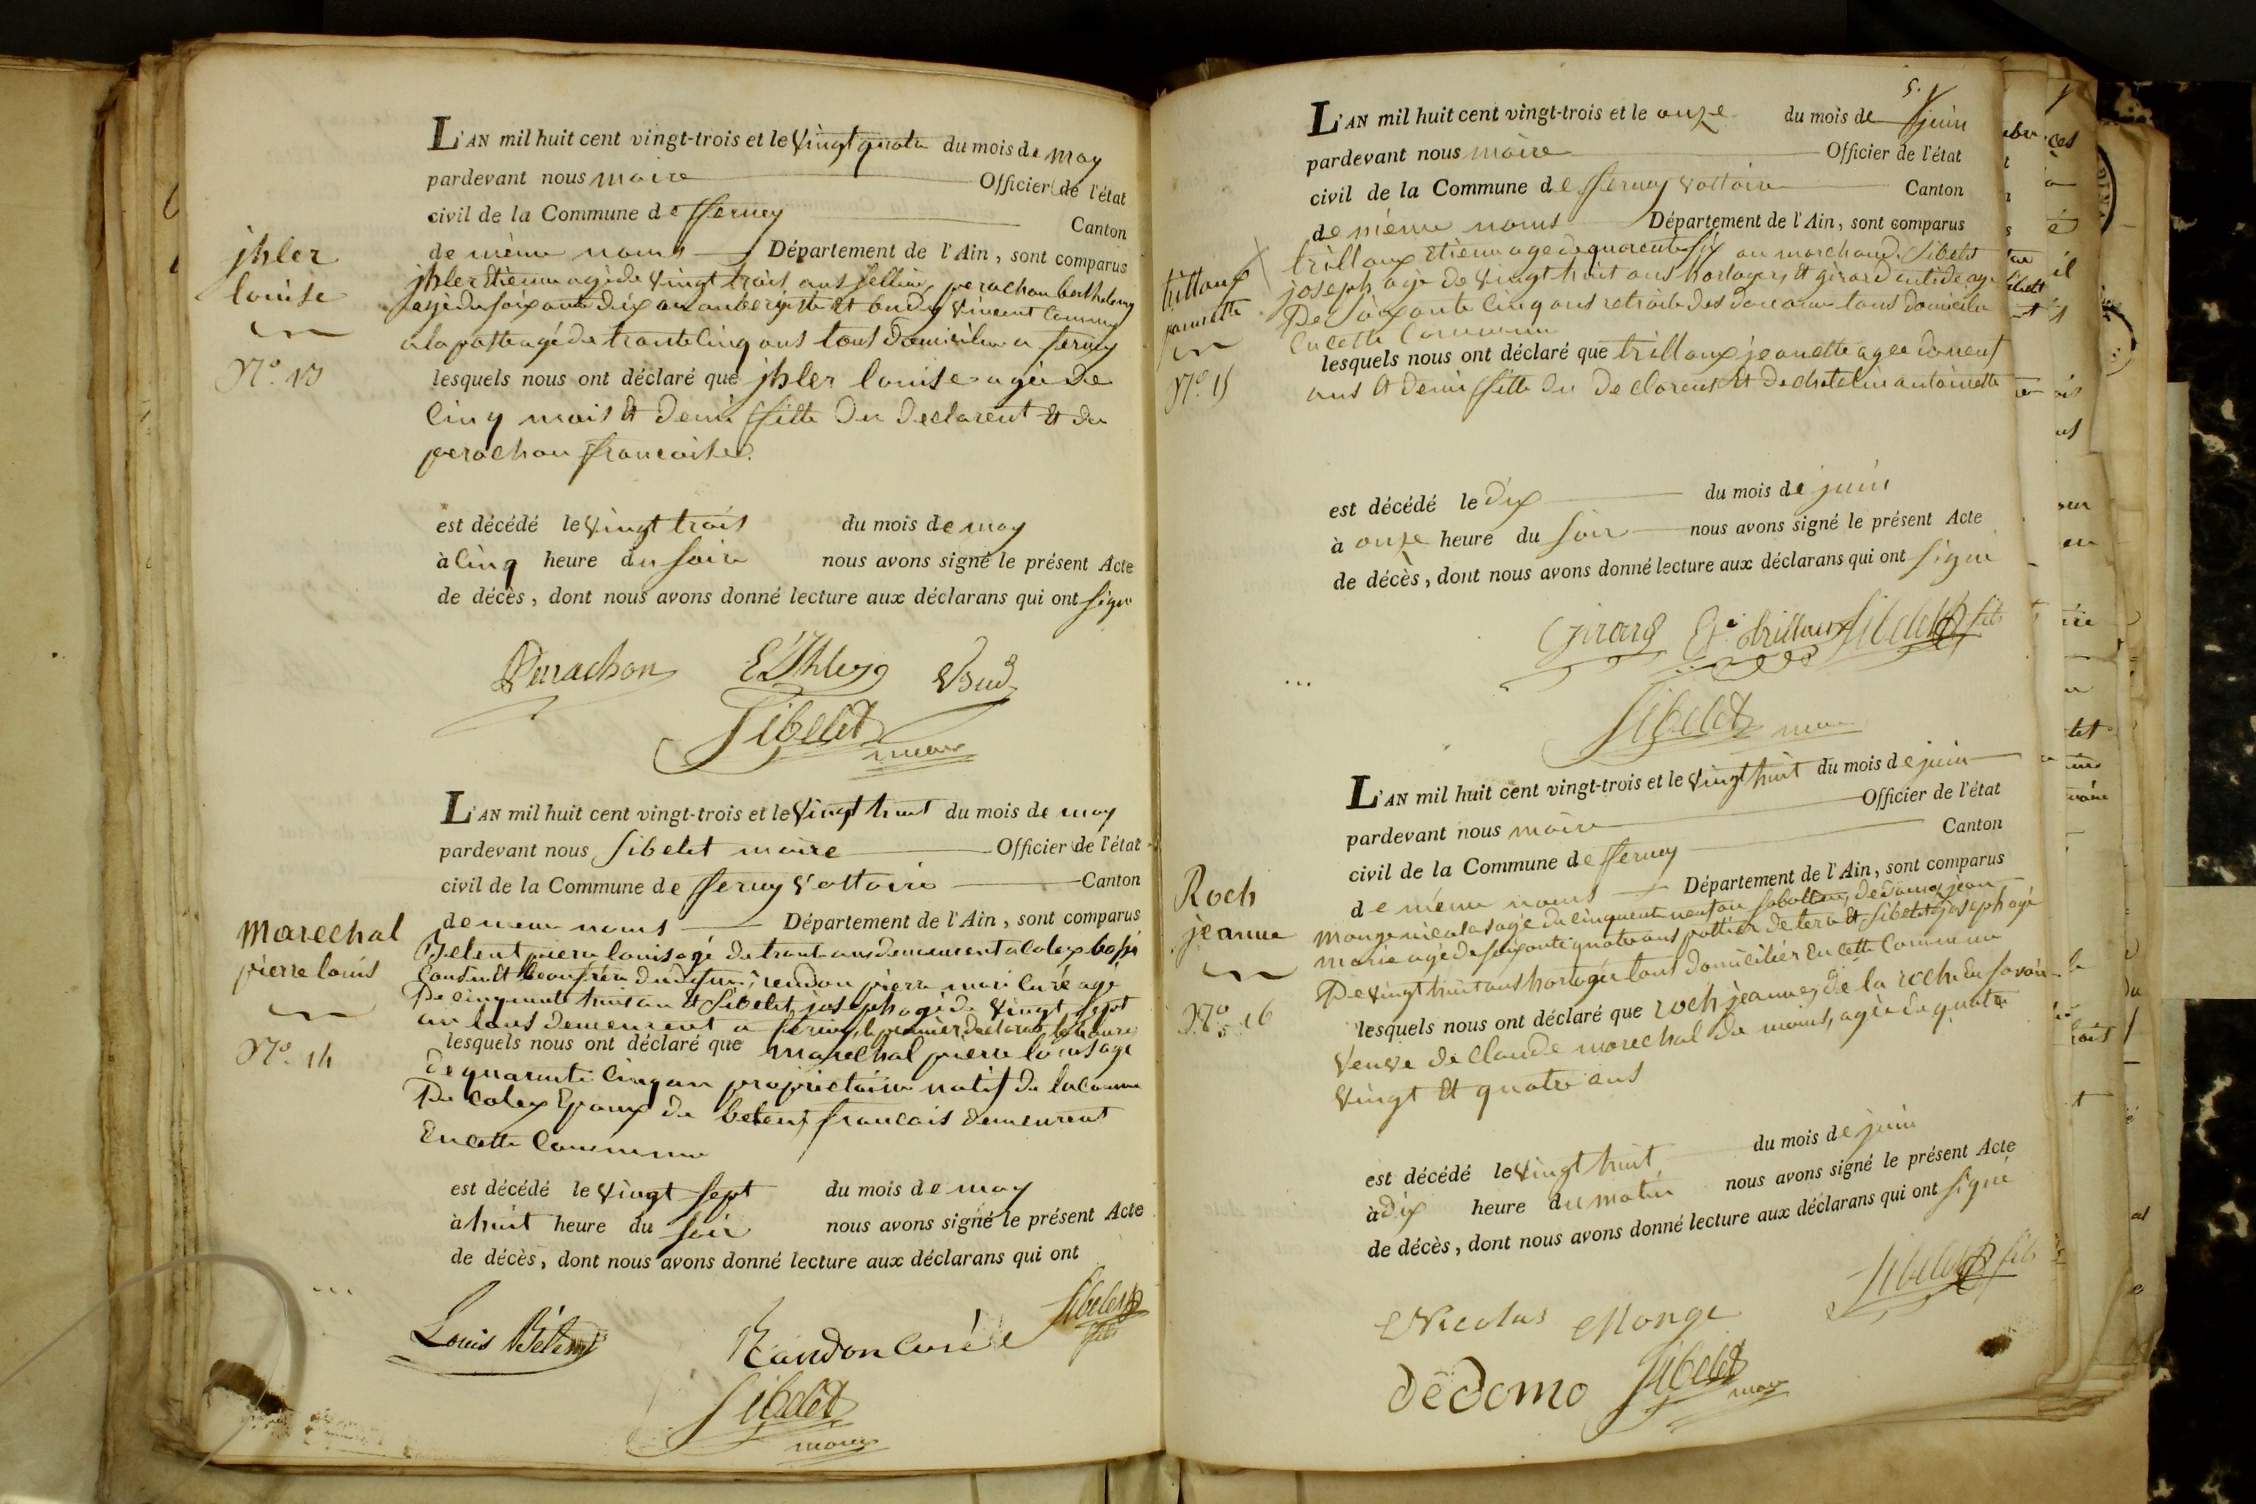 L'AN mil huit cent vingt-trois et le vingt quatre du mois de may
pardevant nous maire Officier de l'état
civil de la Commune de fferney Canton
de même noms Département de l'Ain, sont comparus
jhler Etienne agé de vingt trois ans sellier, perachon barthelemy
agé de soixante dix an aubergiste et budz vincent commis
a la poste agé de trante cinq ans tous domicilier a ferney
lesquels nous ont déclaré que jhler louise agée de
cinq mois et demi ffille du declarent et de
perachon francoise.
jhler
louise
N.o 13
est décédé le vingt trois du mois de may
à cinq heure du soire nous avons signé le présent Acte
de décès, dont nous avons donné lecture aux déclarans qui ont signe
Perachon E Ihler
Sibelet
maire
L'AN mil huit cent vingt-trois et le vingt huit du mois de may
pardevant nous Sibelet maire Officier de l'état
civil de la Commune de fferney Voltaire Canton
de meme noms Département de l'Ain, sont comparus
Betent pierre louis agé de trante ans demeurent a colex bossi
cousin et beaufrère du defunt, rendon pierre mari curé agé
De cinquante huit an et Sibelet joseph agé de vingt sept
an tous demeurent a ferney, le premier declarant
lesquels nous ont déclaré que marechal pierre louis agé
de quarante cinq an proprietaire natif de la comune
De colex Epoux de betent francais demeurent
En cette Commune
marechal
pierre louis
N.o 14
est décédé le vingt sept du mois de may
à huit heure du soir nous avons signé le présent Acte
de décès, dont nous avons donné lecture aux déclarans qui ont
Louis Bétemps Randon Curé Sibelet fils
Sibelet
maire
5.
L'AN mil huit cent vingt-trois et le onze du mois de juin
pardevant nous maire Officier de l'état
civil de la Commune de fferney voltaire Canton
de même noms Département de l'Ain, sont comparus
trillaux Etienne age de quarente six an marchand, Sibelet
joseph agé de vingt huit ans horloger, et girard antide age
De soixante cinq ans retraite des douane tous domicilier
En cette Commune
lesquels nous ont déclaré que trillaux jeanette agee de neuf
ans et demi ffille du declarent et de chatelin antoinette
trillaux
jannette
N.o 15
est décédé le dix du mois de juin
à onze heure du soir nous avons signé le présent Acte
de décès, dont nous avons donné lecture aux déclarans qui ont signé
Girard Et.e trillaux Sibelet fils
Sibelet maire
L'AN mil huit cent vingt-trois et le vingt huit du mois de juin
pardevant nous maire Officier de l'état
civil de la Commune de fferney Canton
de même noms Département de l'Ain, sont comparus
monge nicolas agé de cinquente neuf an sabottier, dédomo jean
marie agé de soixante quatre ans pottier de terre et Sibelet joseph agé
De vingt huit ans horloger tous domicilier En cette Commune
lesquels nous ont déclaré que roch jeanne, de la roche en savoie
veuve de claude marechal de moins, agée de quatre
vingt et quatre ans
Roch
jeanne
N.o 16
est décédé le vingt huit du mois de juin
à dix heure du matin nous avons signé le présent Acte
de décès, dont nous avons donné lecture aux déclarans qui ont signé
Sibelet fils
Nicolas Monge
dédomo Sibelet
maire